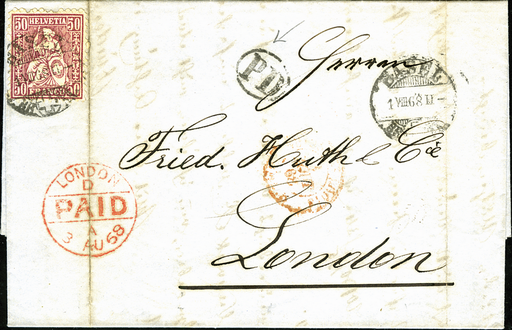 50 HELVETIA 50
50 FRANCO 50
PD
Herren
BASEL
1 VIII 68 11
Fried. Huth & Cie
LONDON
D
PAID
A
3 AU 68
London